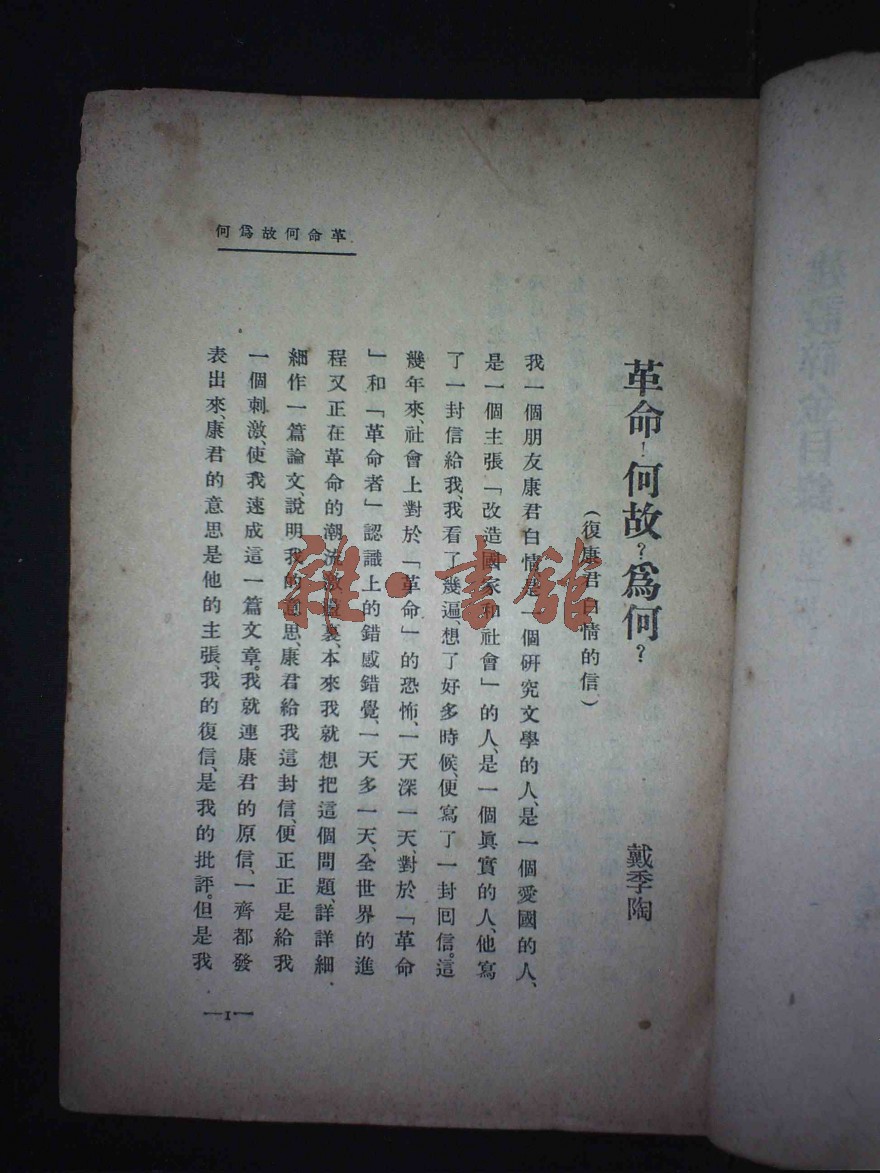 革命何故爲何
革命！何故？爲何？
（復康君白情的信）
戴季陶
我一個朋友康君白情、是一個研究文學的人、是一個愛國的人、
是一個主張「改造國家和社會」的人、是一個眞實的人、他寫
了一封信給我、我看了幾遍、想了好多時候、便寫了一封回信。這
幾年來、社會上對於「革命」的恐怖、一天深一天、對於「革命
」和「革命者」認識上的錯感錯覺、一天多一天、全世界的進
程又正在革命的潮流 裏、本來我就想把這個問題、詳詳細
細作一篇論文、說明我的意思、康君給我這封信、便正正是給我
一個刺激、使我速成這一篇文章。我就連康君的原信、一齊都發
表出來、康君的意思是他的主張、我的復信、是我的批評。但是我
1
雜·書館